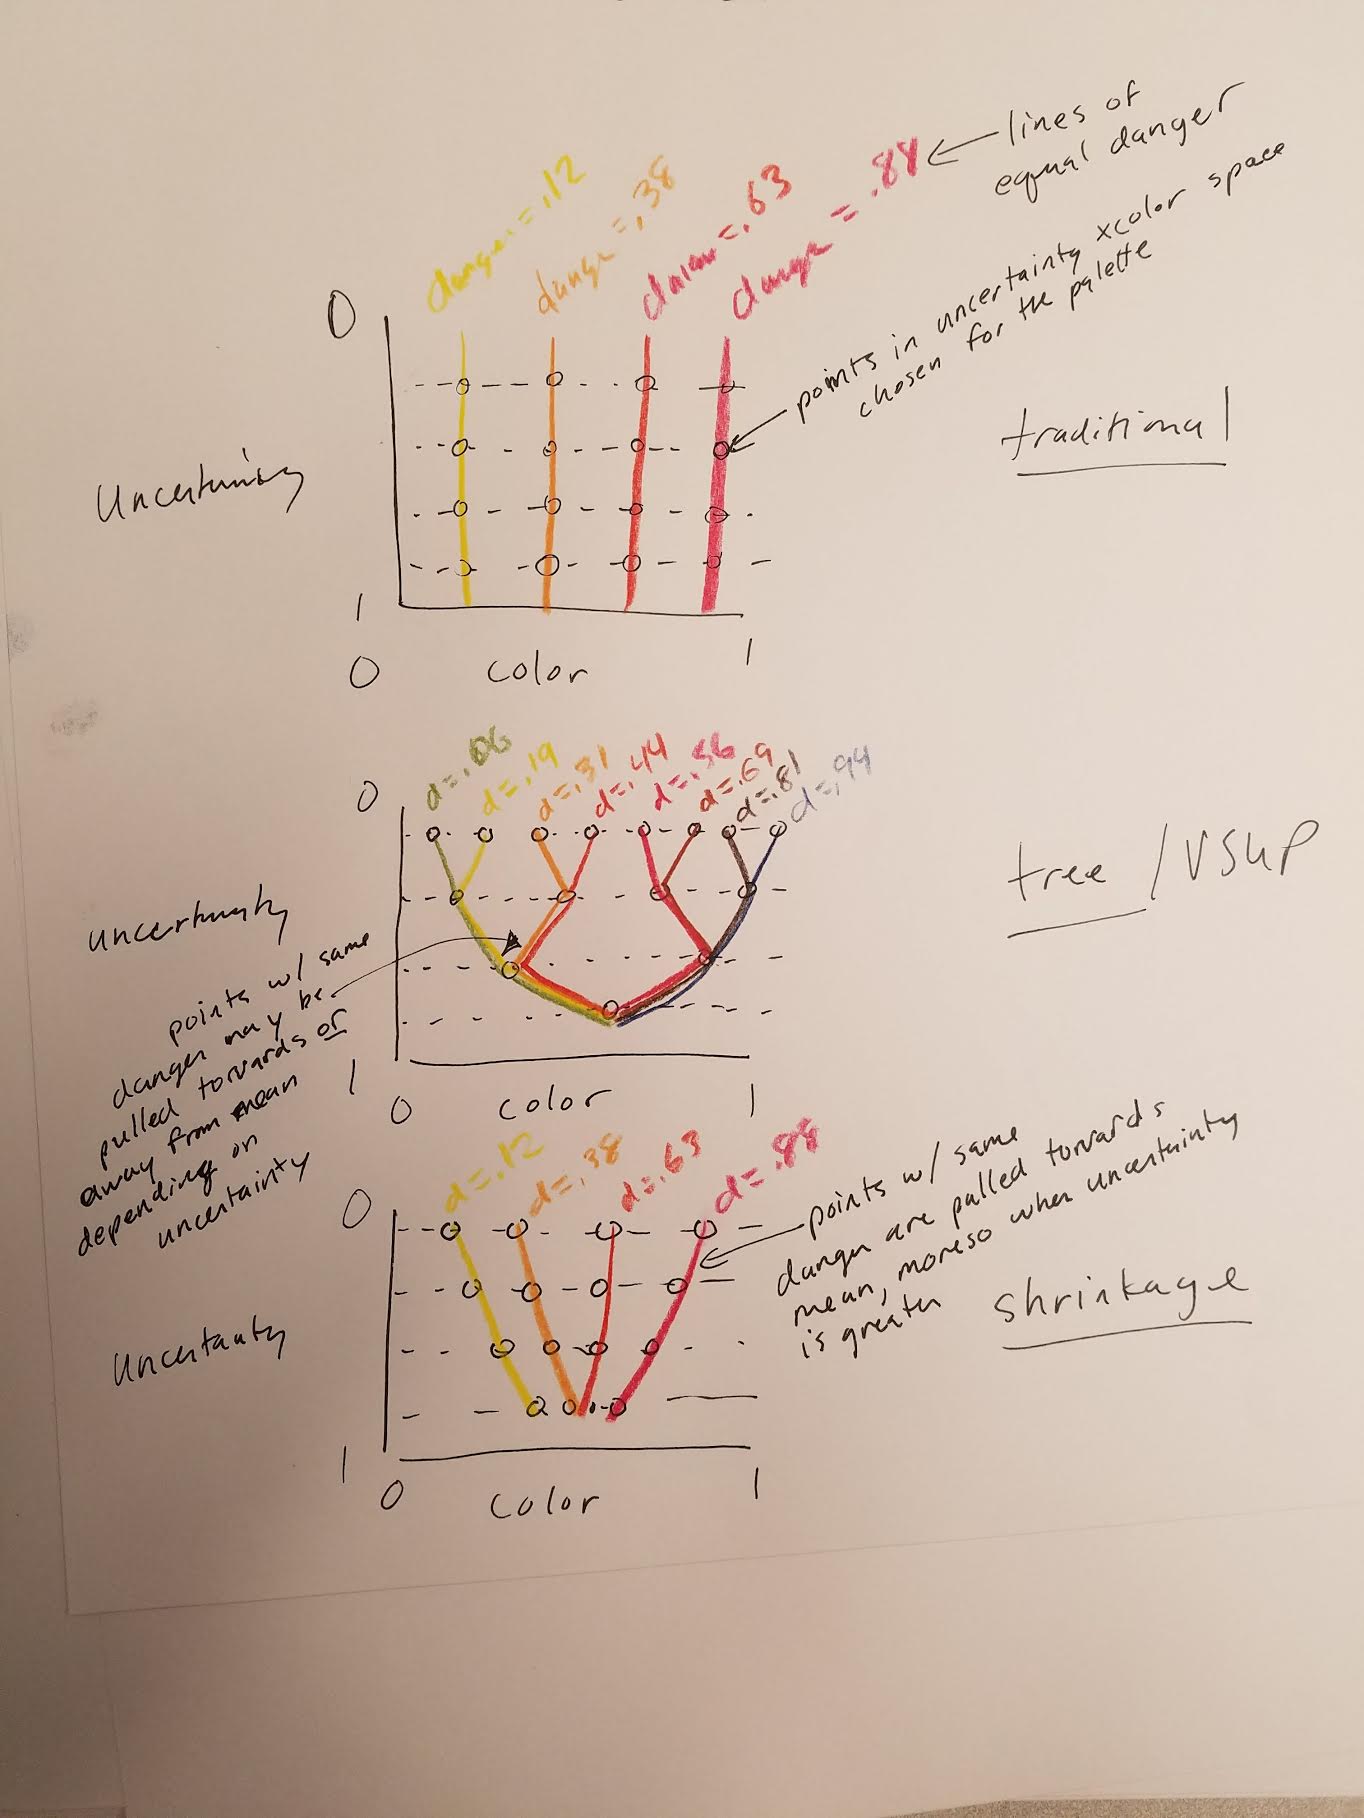 danger=.12
danger=.38
danger=.63
danger=.88
lines of
equal danger
points in uncertainty xcolor space
chosen for the palette
traditional
0
Uncertainty
1
0
color
1
d=.06
d=.19
d=.31
d=.44
d=.56
d=.69
d=.81
d=.94
tree / VSUP
0
uncertainty
points w/ same
danger may be
pulled torwards or
away from mean
depending on
uncertainty
1
0
color
1
d=.12
d=.38
d=.63
d=.88
points w/ same
danger are pulled torwards
mean, moreso when uncertainty
is greater
shrinkage
0
Uncertainty
1
0
color
1